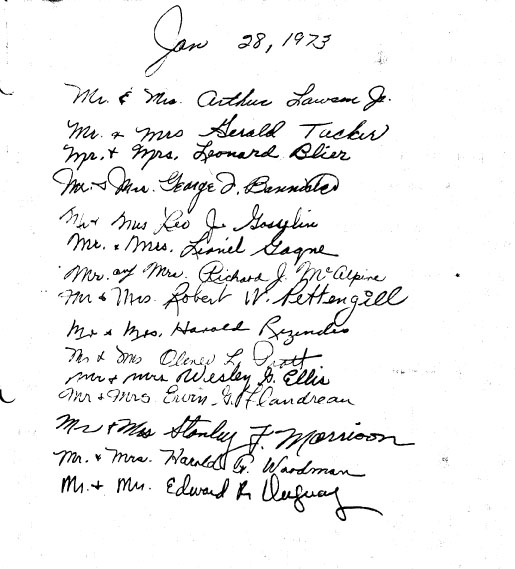 Jan 28, 1973
Mr. & Mrs. Arthur Lawson Jr.
Mr. & Mrs Gerald Tucker
Mr. + Mrs. Leonard Blier
Mr. & Mrs. George J. Bannister
Mr & Mrs Leo J. Gosselin
Mr. & Mrs. Lionel Gagne
Mr. and Mrs. Richard J. McAlpine
Mr & Mrs. Robert W. Pettengill
Mr & Mrs. Harold Rezendes
Mr & Mrs Oliver L. Pratt
Mr + Mrs Wesley G. Ellis
Mr + Mrs Ervin G. Flandreau
Mr & Mrs Stanley F. Morrison
Mr. & Mrs. Harold G. Woodman
Mr. + Mrs. Edward R. Duguay